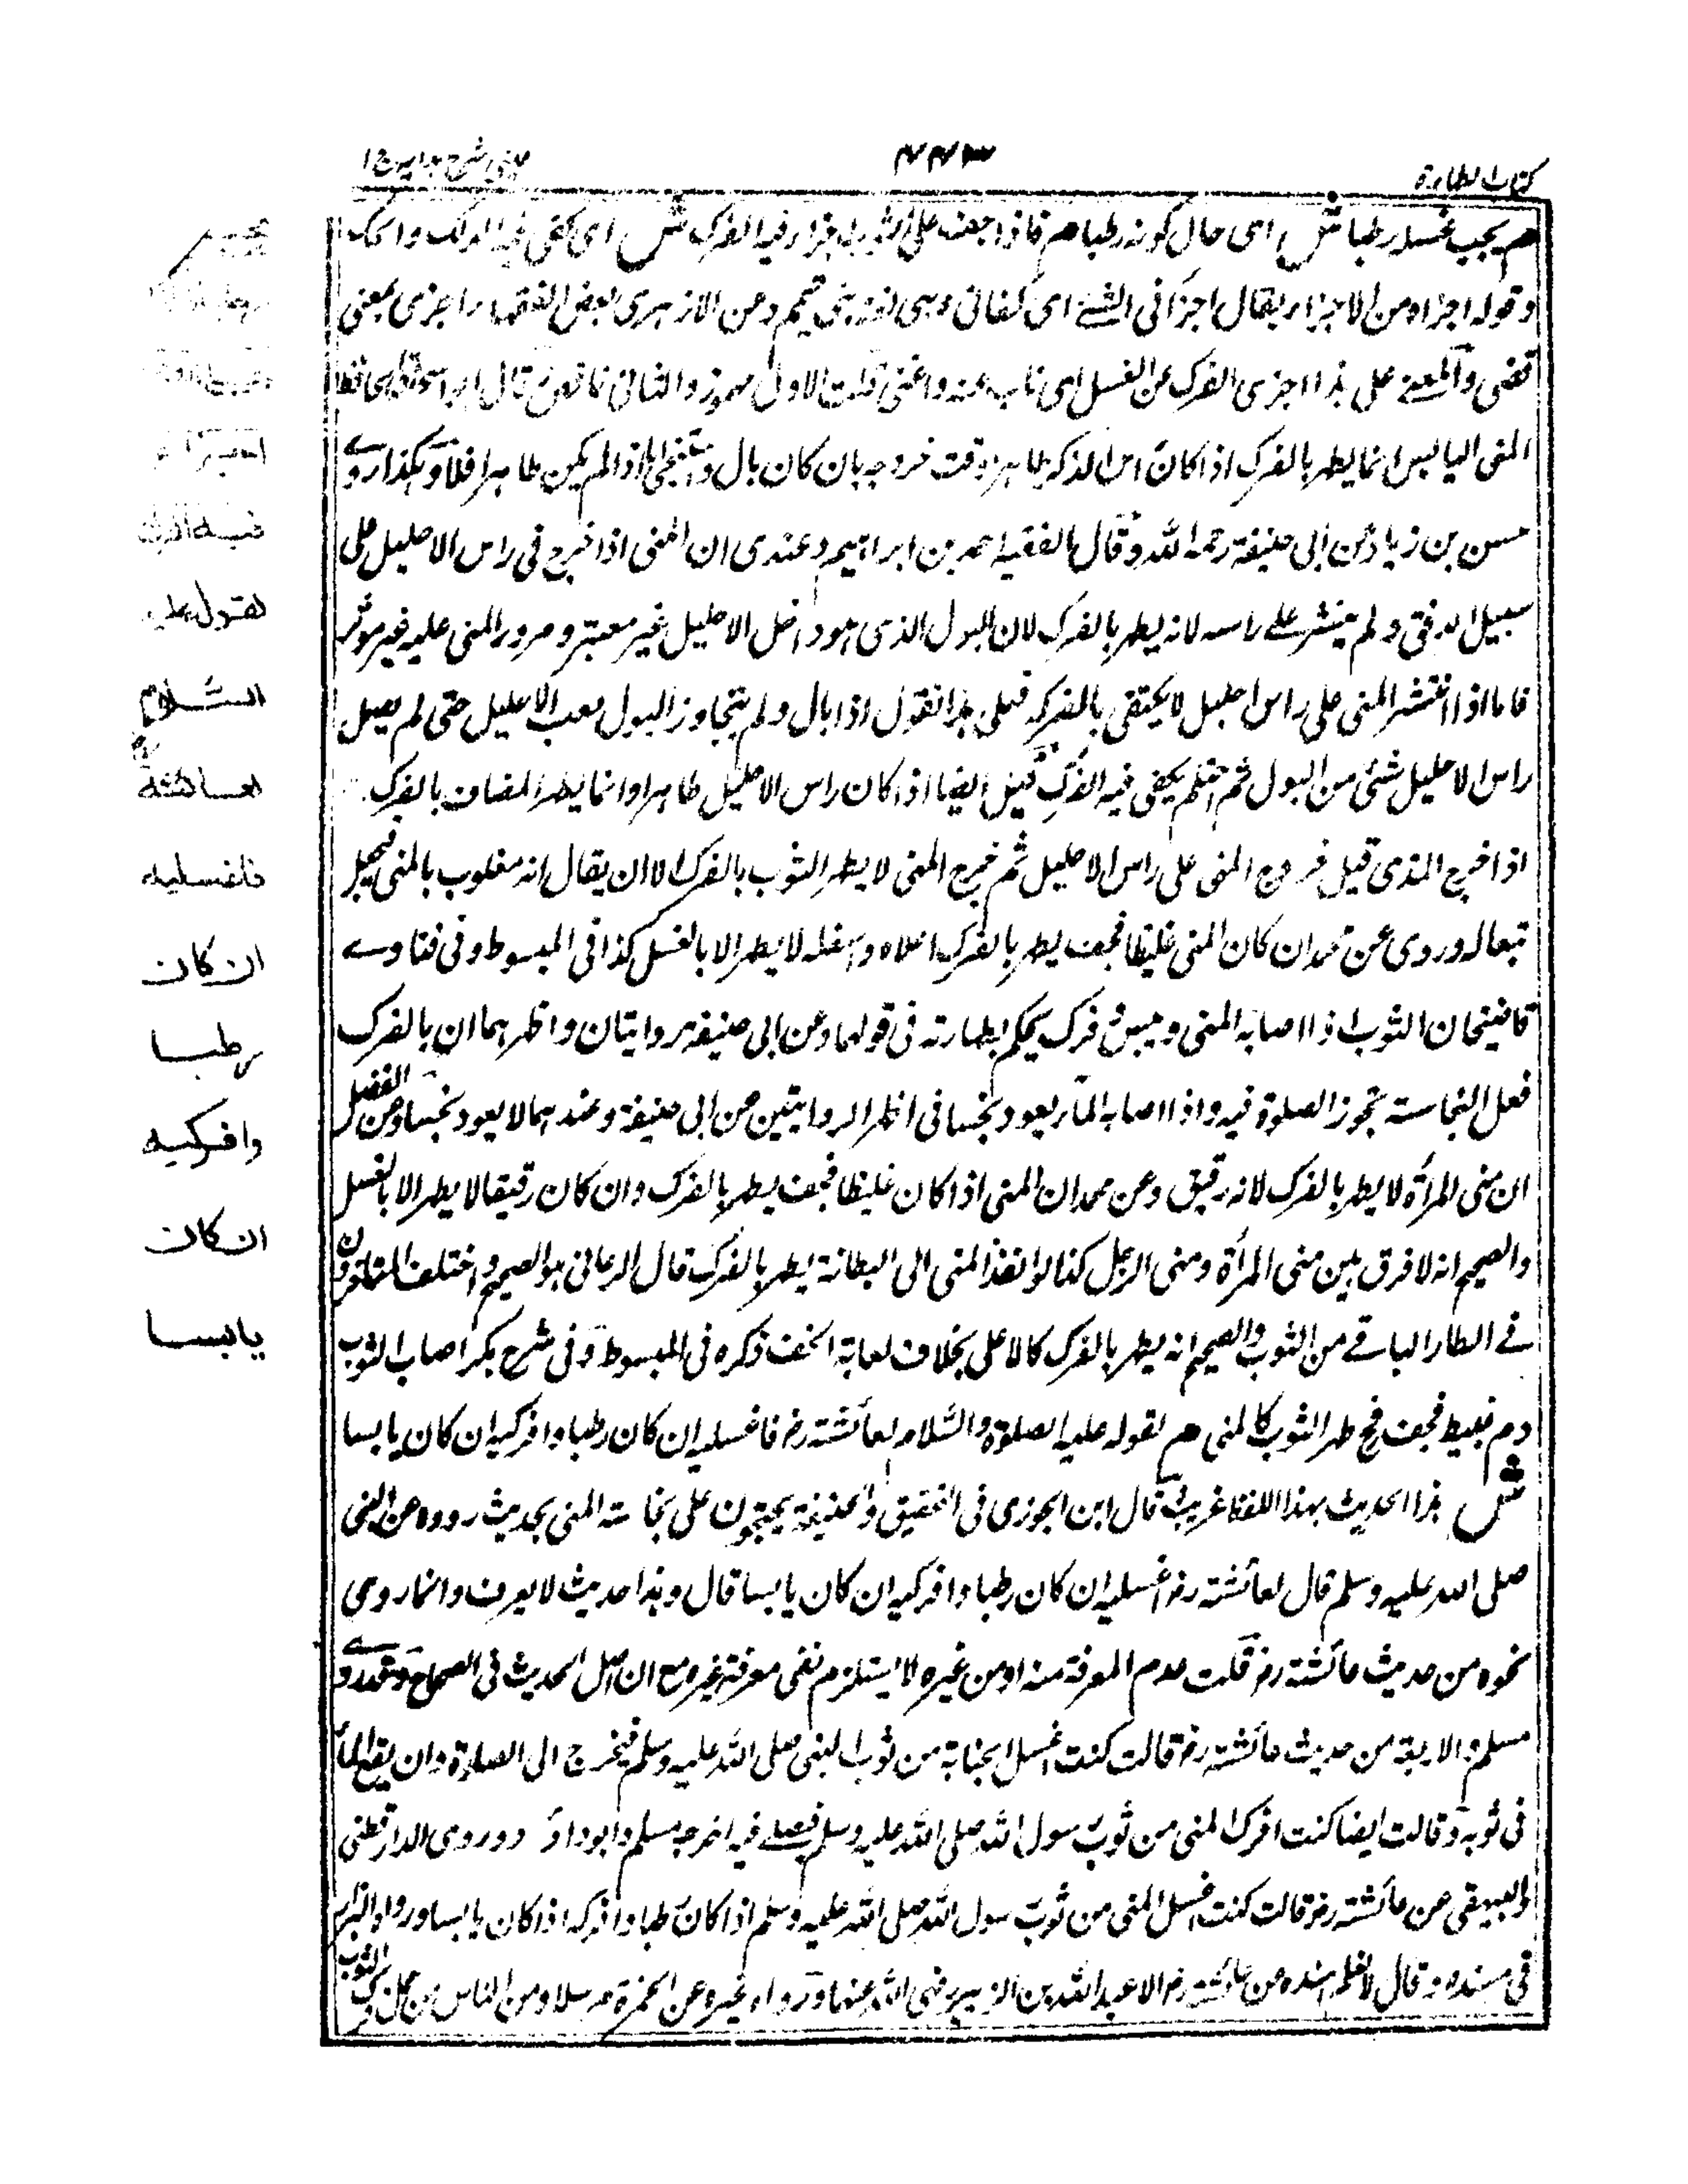 كتاب الطهارة
٤٤٣
عيني شرح هداية ج ١
هم يجب غسله رطبا ش اى حال كونه رطبا هم فاذا جف على الثوب اجزاء فيه الفرك ش اى كفى فيه الدلك والحك
وقوله اجزاه من الاجزاء يقال اجزأنى الشئ اى كفانى وهى لغة بنى تميم وعن الازهرى بعض الفقهاء اجزى بمعنى
قضى والمعنى على هذا اجزى الفرك عن الغسل اى ناب عنه واغنى قلت الاول مهموز والثانى ناقص قال ابو اسحق الحافظ
المنى اليابس انما يطهر بالفرك اذا كان راس الذكر طاهرا وقت خروجه بان كان بال واستنجى اما اذا لم يكن طاهرا فلا وهكذا روى
حسن بن زياد عن ابى حنيفة رحمه الله وقال الفقيه احمد بن ابراهيم وعندى ان المنى اذا خرج فى راس الاحليل على
سبيل الدفق ولم ينشر على راسه لانه يطهر بالفرك لان البول الذى هو داخل الاحليل غير معتبر ومرور المنى عليه غير موثر
فاما اذا انتشر المنى على راس احليل لا يكتفى بالفرك فعلى هذا نقول اذا بال ولم يتجاوز البول ثعب الاحليل حتى لم يصل
راس الاحليل شئ من البول ثم احتلم يكفى فيه الفرك قيل ايضا اذا كان راس الاحليل طاهرا وانما يطهر المضاف بالفرك
اذا خرج المذى قبل خروج المنى على راس الاحليل ثم خرج المنى لا يطهر الثوب بالفرك الا ان يقال انه مغلوب بالمنى فيجعل
تبعا له وروى عن محمد ان كان المنى غليظا فجف يطهر بالفرك اعلاه واسفله لا يطهر الا بالغسل كذا فى المبسوط وفى فتاوے
قاضيخان الثوب اذا اصابه المنى ويبس ثم فرك يحكم بطهارته فى قولهما وعن ابى حنيفة روايتان واظهرهما ان بالفرك
فعل النجاسة تجوز الصلوة فيه واذا اصابه الماء يعود نجسا فى اظهر الروايتين عن ابى حنيفة وعندهما لا يعود نجسا وعن الفضل
ان منى المرأة لا يطهر بالفرك لانه رقيق وعن محمد ان المنى اذا كان غليظا فجف يطهر بالفرك وان كان رقيقا لا يطهر الا بالغسل
والصحيح انه لا فرق بين منى المرأة ومنى الرجل كذا لو نفذ المنى الى البطانة يطهر بالفرك قال المرغانى هو الصحيح واختلف المتاخرون
فے الطاق الباقے من الثوب والصحيح انه يطهر بالفرك كالاعلى بخلاف لعابة الخف ذكره فى المبسوط وفى شرح بكر اصاب الثوب
دم عبيط فجف فحج طهر الثوب كالمنى هم لقوله عليه الصلوة والسلام لعائشة رض فاغسليه ان كان رطبا وافركيه ان كان يابسا
ش هذا الحديث بهذا اللفظ غريب قال ابن الجوزى فى التحقيق والحنفية يحتجون على نجاسة المنى بحديث رووه عن النبى
صلى الله عليه وسلم قال لعائشة رض اغسليه ان كان رطبا وافركيه ان كان يابسا قال وهذا حديث لا يعرف وانما روى
نحوه من حديث عائشة رض قلت عدم المعرفة منه او من غيره لا يستلزم نفى معرفة غيره مع ان اصل الحديث فى الصحاح وقد روے
مسلم والاربعة من حديث عائشة رض قالت كنت اغسل الجنابة من ثوب النبى صلى الله عليه وسلم فيخرج الى الصلوة وان بقع الماء
فى ثوبه وقالت ايضا كنت افرك المنى من ثوب رسول الله صلى الله عليه وسلم فيصلے فيه اخرجه مسلم وابو داؤد وروى الدارقطنى
والبيهقى عن عائشة رض قالت كنت اغسل المنى من ثوب رسول الله صلى الله عليه وسلم اذا كان رطبا وافركه اذا كان يابسا ورواه البزار
فى مسنده وقال لا نعلم اسنده عن عائشة رض الا عبد الله بن الزبير رضى الله عنهما ورواه غيره عن الحمزة مرسلا ومن الناس من حمل فرك الثوب
لقوله عليه
السلام
لعائشة
فاغسليه
ان كان
رطبا
وافركيه
ان كان
يابسا